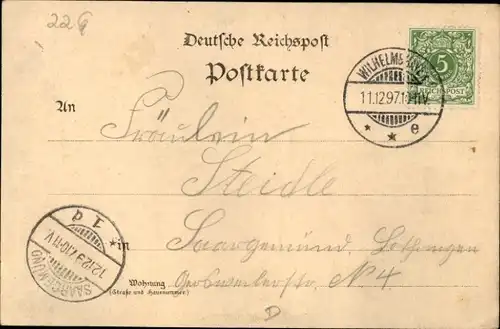 22G
Deutsche Reichspost
Postkarte
5
REICHSPOST
11.12.97.10-11V.
* * e
An
Fräulein
Steidle
in Saargemünd, Lothringen
Wohnung
(Straße und Hausnummer)
N° 4
SAARGEMÜND
12.12.97.10-11.V.
1 d
D